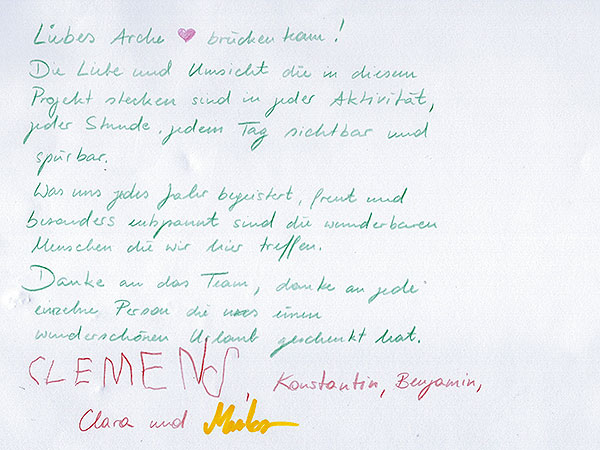 Liebes Arche ♥ brückenteam!
Die Liebe und Umsicht die in diesem
Projekt stecken sind in jeder Aktivität,
jeder Stunde, jedem Tag sichtbar und
spürbar.
Was uns jedes Jahr begeistert, freut und
besonders entspannt sind die wunderbaren
Menschen die wir hier treffen.
Danke an das Team, danke an jede
einzelne Person die uns einen
wunderschönen Urlaub geschenkt hat.
CLEMENS, Konstantin, Benjamin,
Clara und